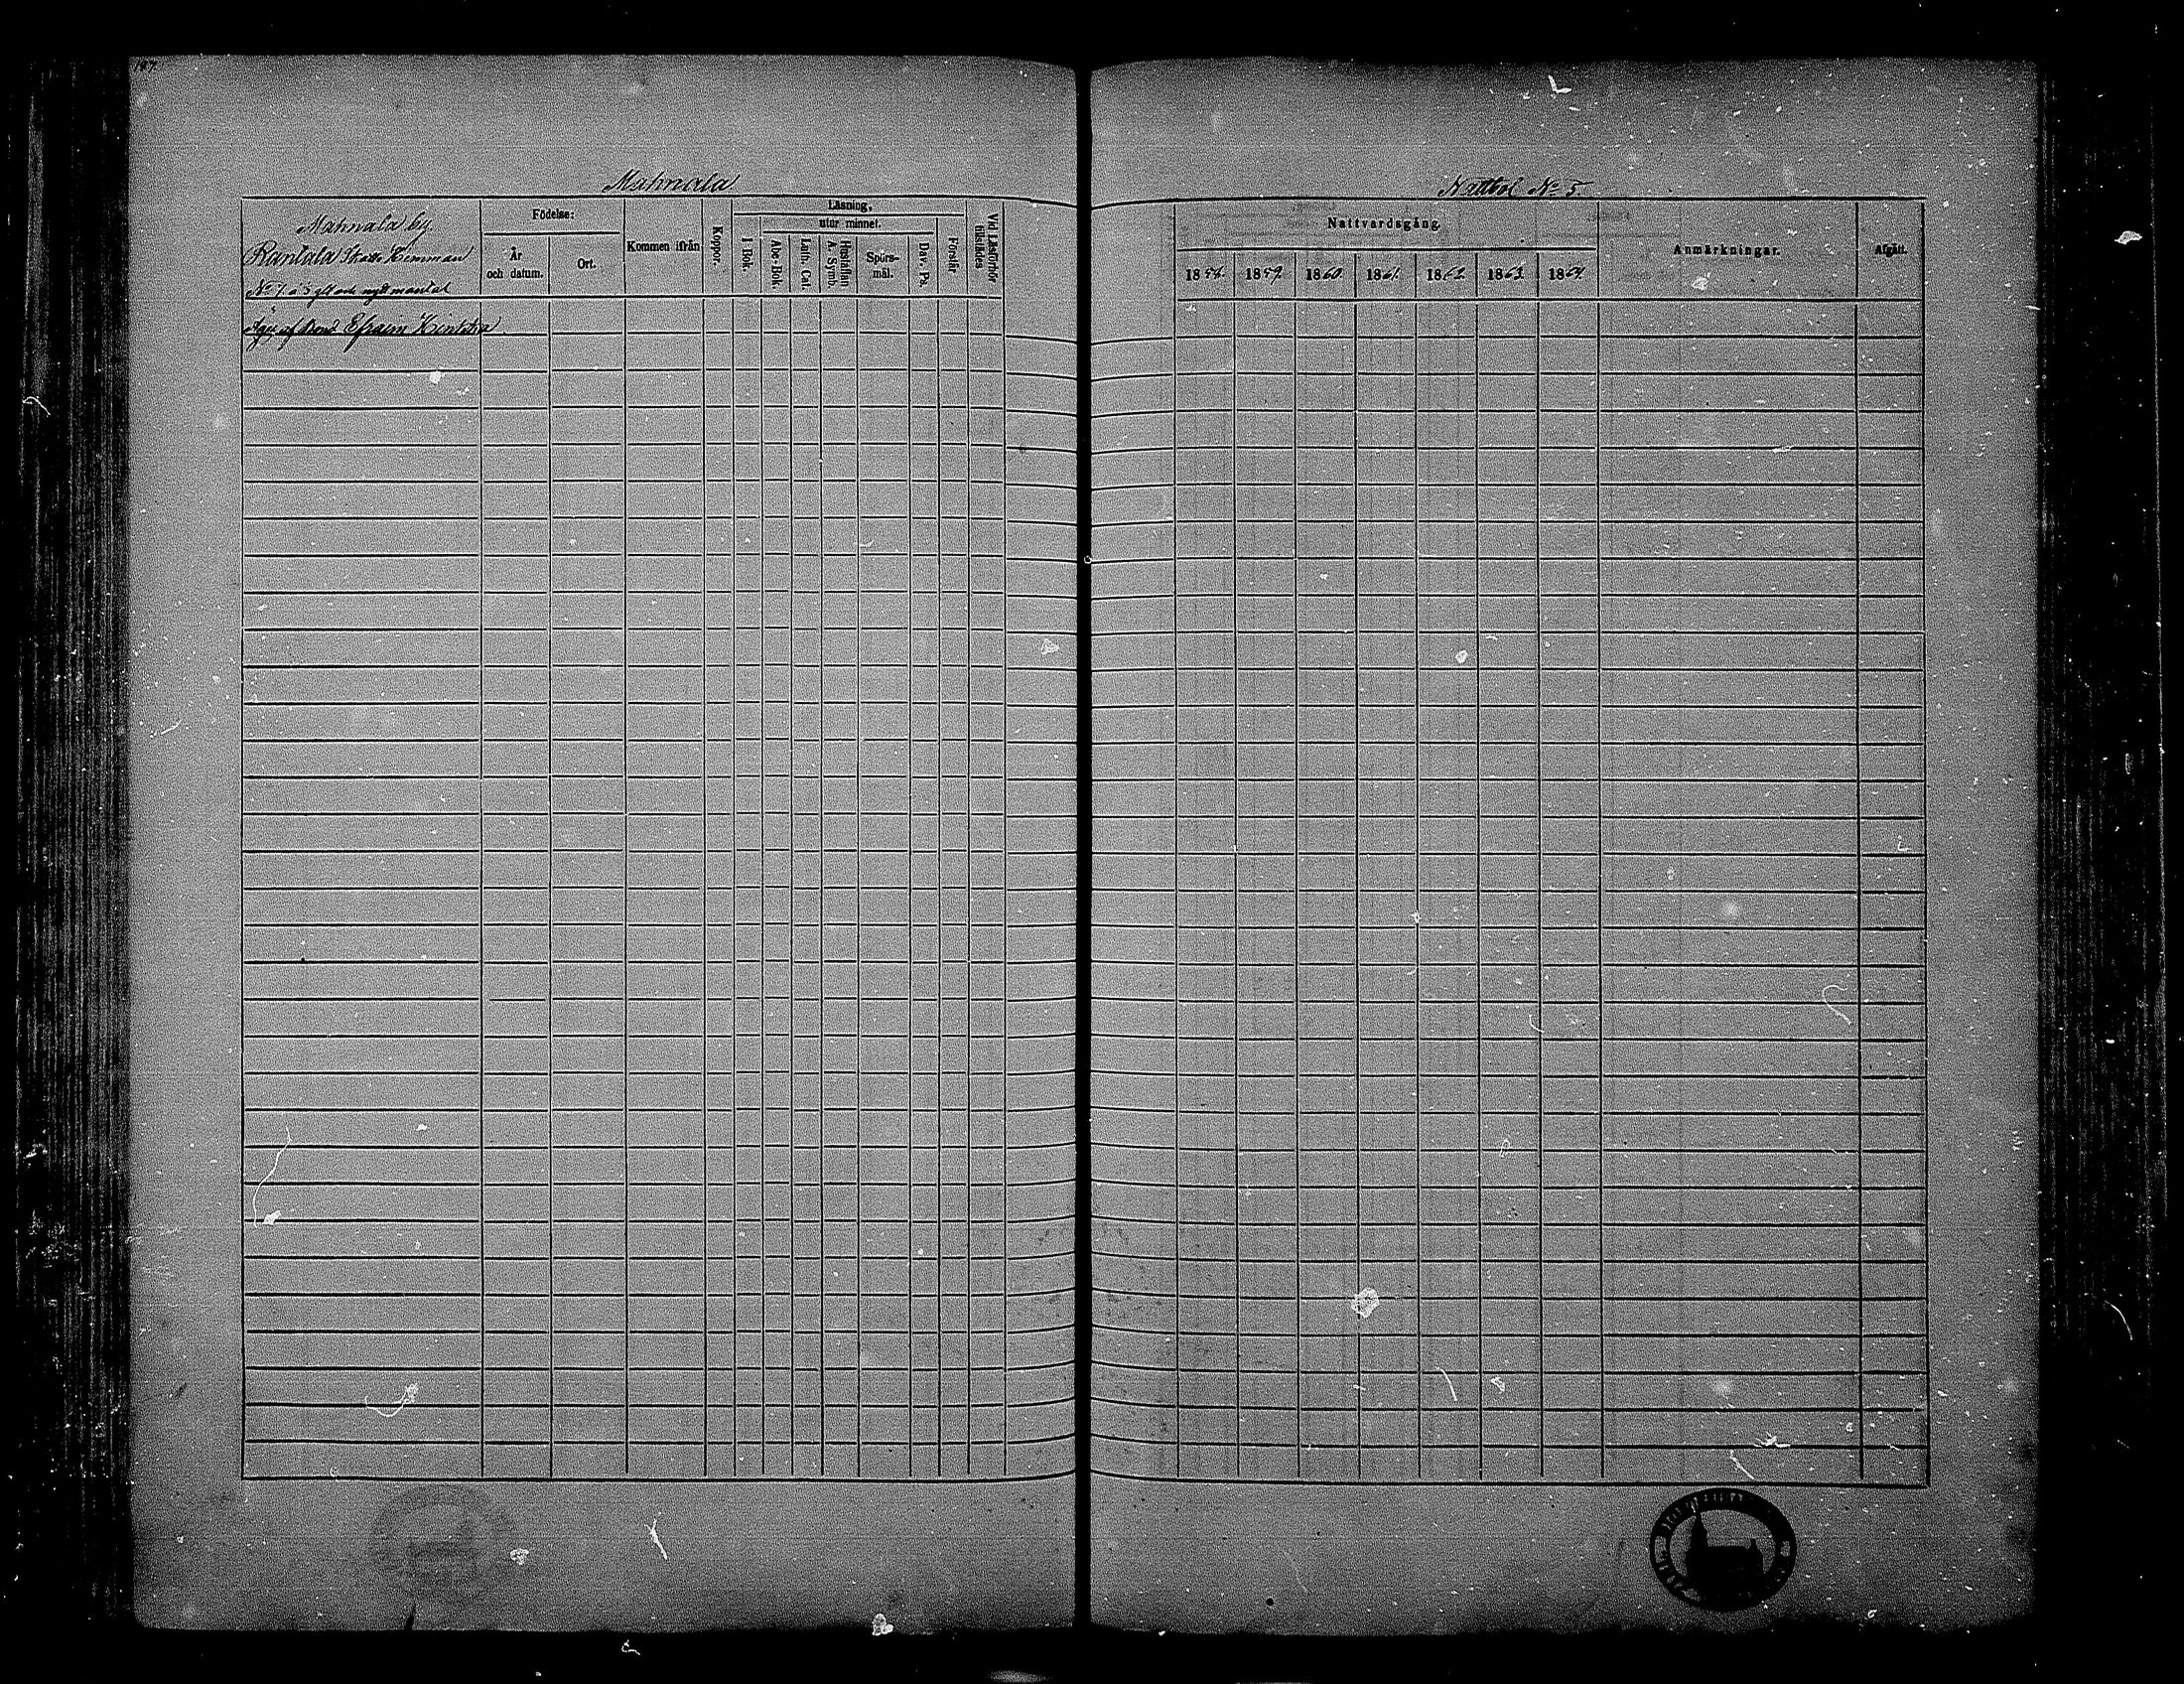 187.
Mahnala
Nattbol No 5
Mahnala by.
Rantala Skatte Hemman
No 7.
Äges af Bond. Efraim
Födelse:
År
och datum.
Ort.
Kommen ifrån
Koppor.
Läsning,
utur minnet.
I Bok.
Abc-Bok.
Luth. Cat.
Hustaflan
A. Symb.
Spörs-
mål.
Dav. Ps.
Förstår
Vid Läsförhör
tillstädes
Nattvardsgång.
1858. 1859. 1860. 1861. 1862. 1863. 1864.
Anmärkningar.
Afgått.